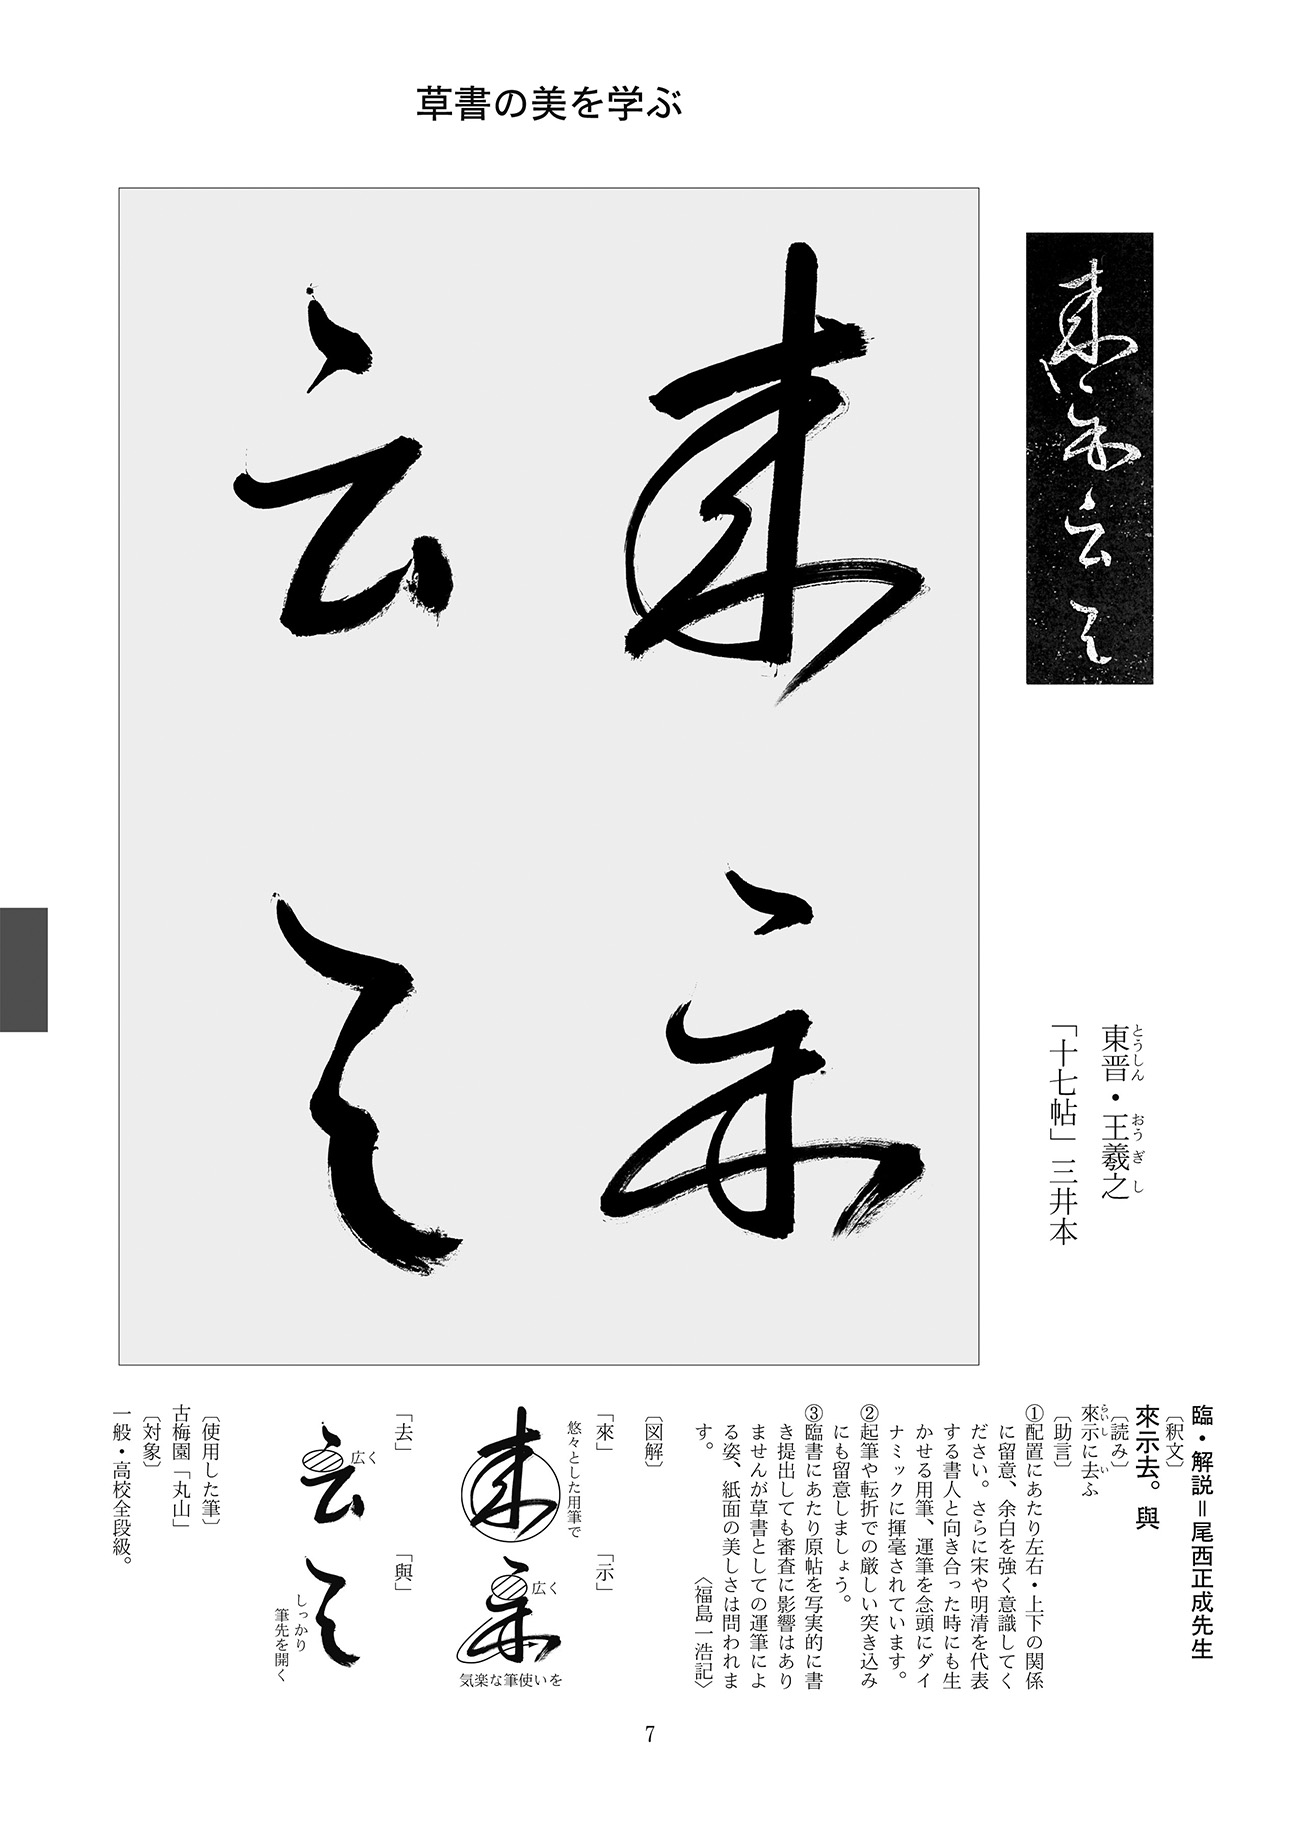 草書の美を学ぶ
來示云與
來示
云與
東晋・王羲之
とうしん
おうぎし
「十七帖」三井本
臨・解説＝尾西正成先生
〔釈文〕
來示去。與
〔読み〕
來示に去ふ
らいし
い
〔助言〕
①配置にあたり左右・上下の関係
に留意、余白を強く意識してく
ださい。さらに宋や明清を代表
する書人と向き合った時にも生
かせる用筆、運筆を念頭にダイ
ナミックに揮毫されています。
②起筆や転折での厳しい突き込み
にも留意しましょう。
③臨書にあたり原帖を写実的に書
き提出しても審査に影響はあり
ませんが草書としての運筆によ
る姿、紙面の美しさは問われま
す。
〈福島一浩記〉
〔図解〕
「來」
悠々とした用筆で
來
「示」
広く
示
気楽な筆使いを
「去」
広く
云
「與」
與
しっかり
筆先を開く
〔使用した筆〕
古梅園「丸山」
〔対象〕
一般・高校全段級。
7